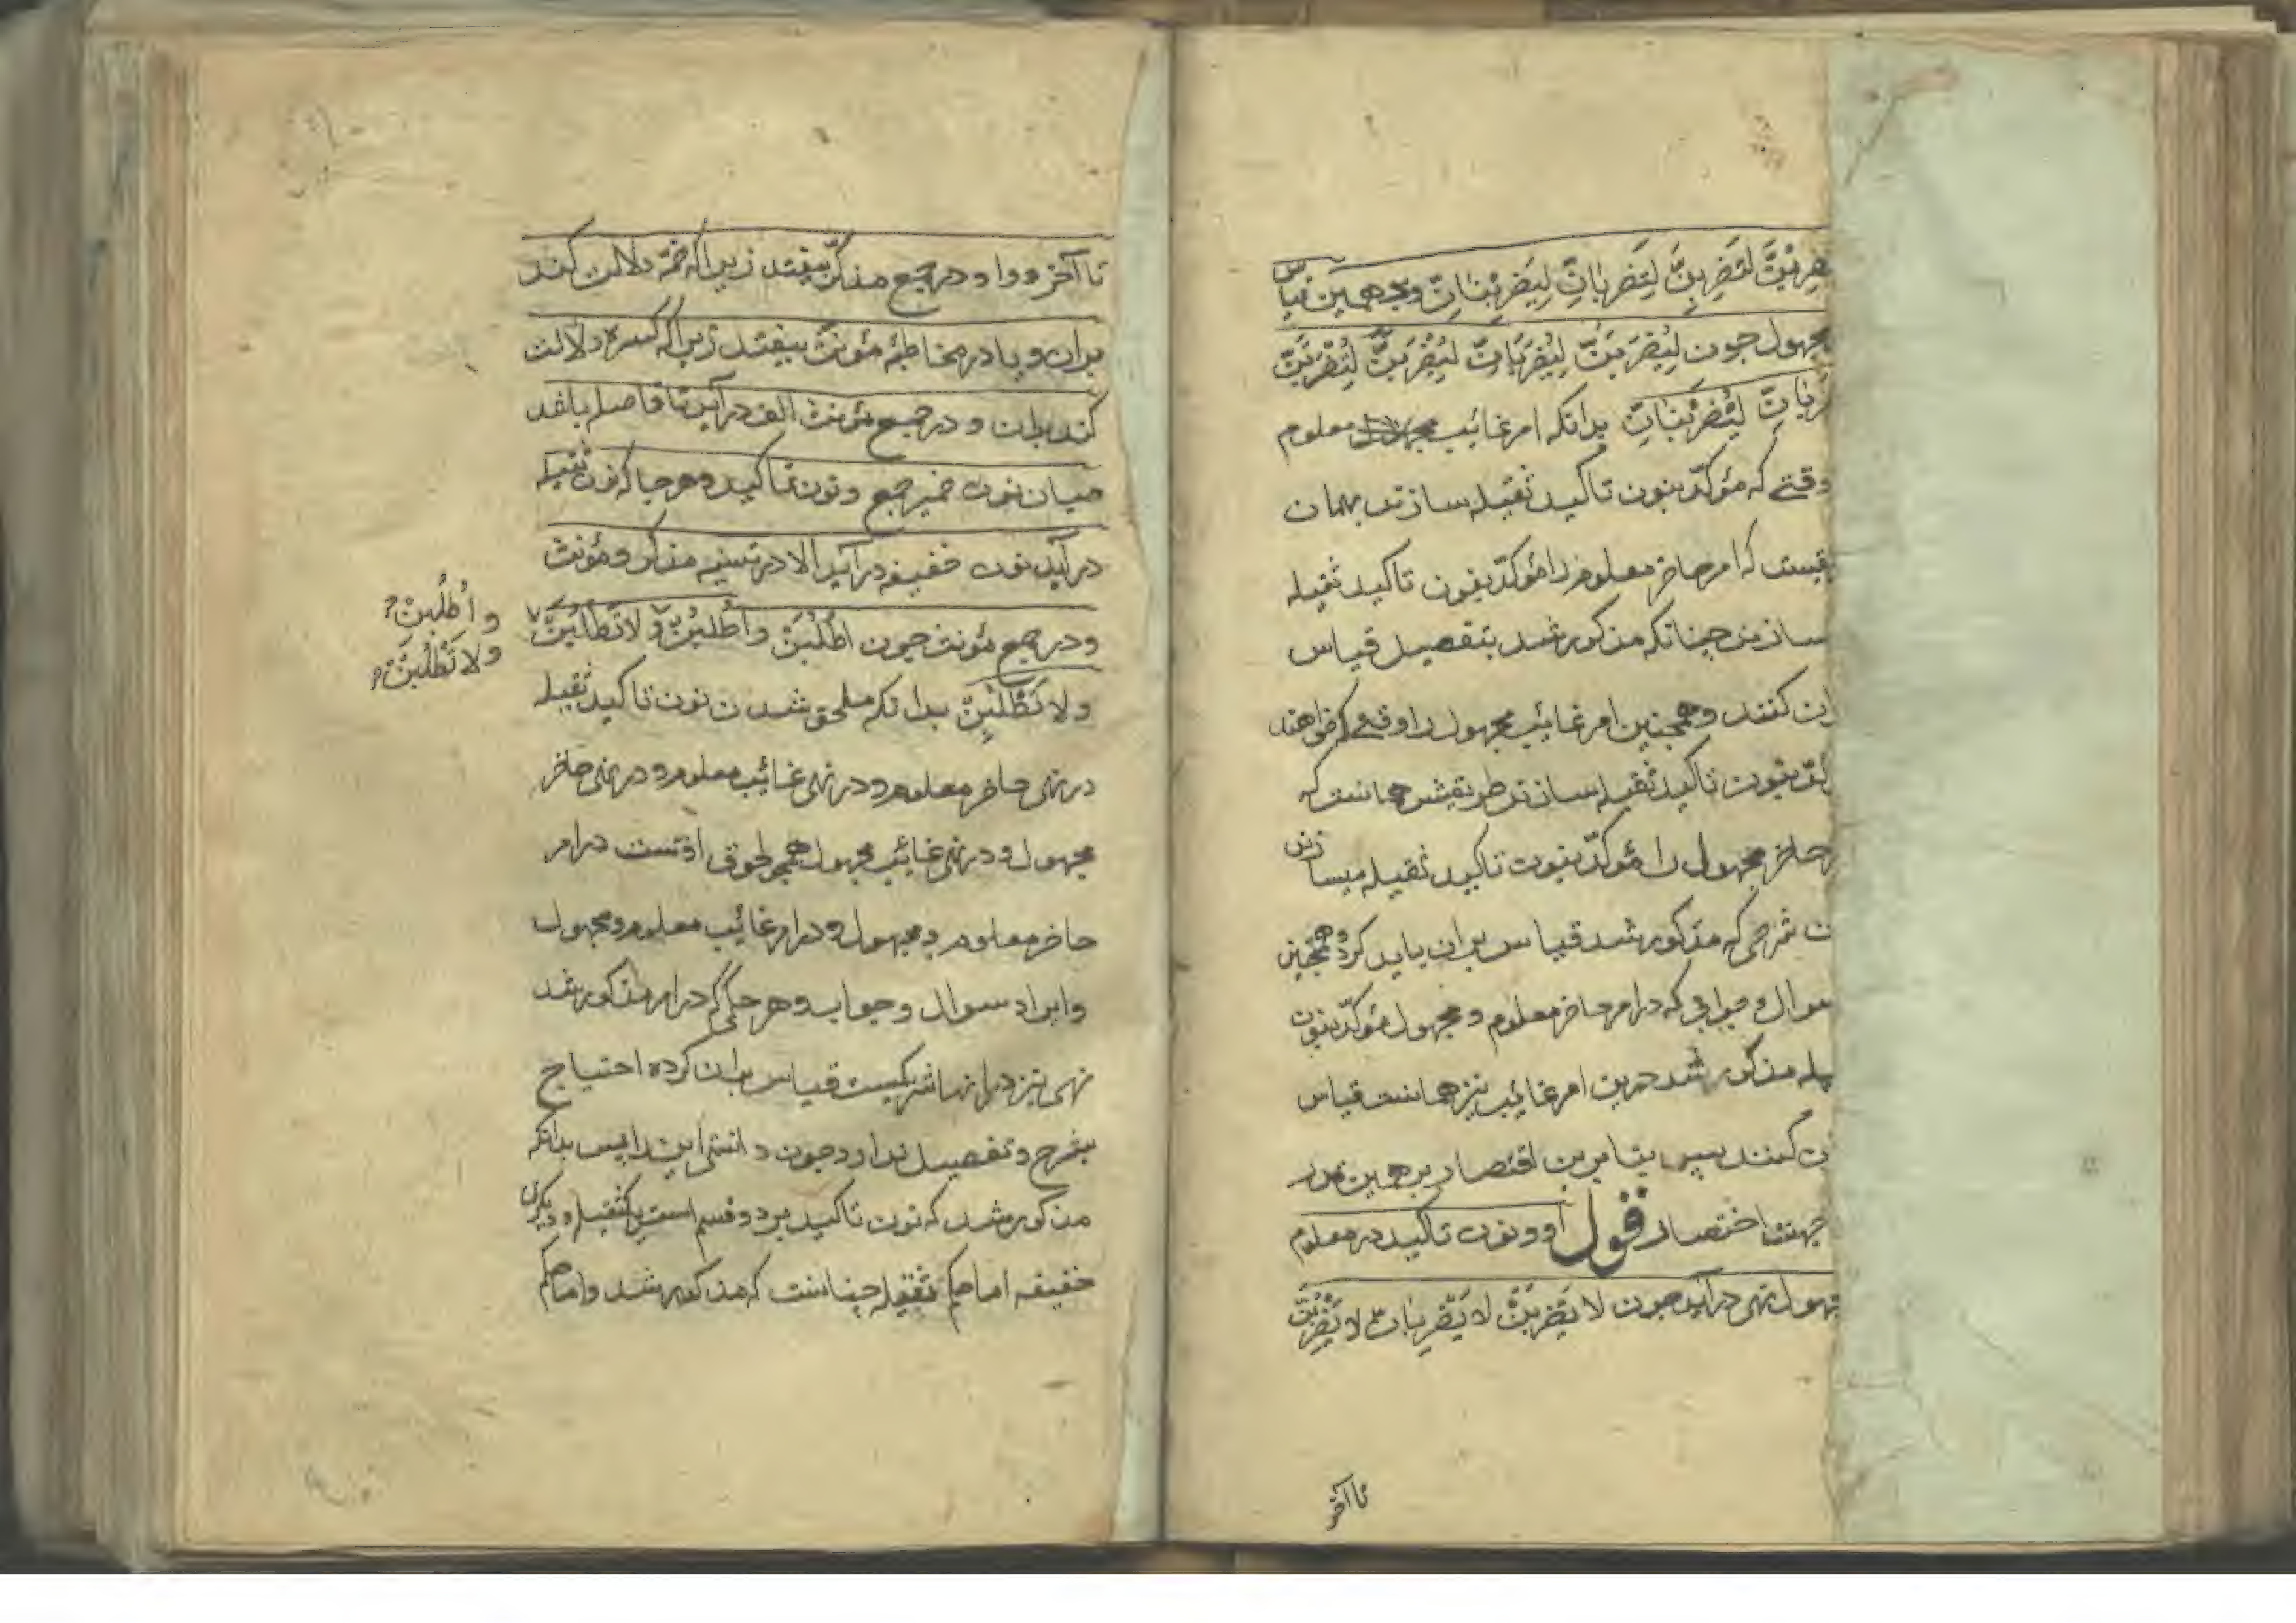 لَتَضْرِبِنَّ لِتَضْرِبَانِّ لِيَضْرِبْنَانِّ وبدهمين قياس
مجهول چون لِيُضْرَبَنَّ لِيُضْرَبَانِّ لِيُضْرَبُنَّ لِتُضْرَبَنَّ
لِيُضْرَبْنَانِّ بدانكه امر غائب معلوم
وقتے كه مؤكّد بنون تاكيد ثقيله سازند بهمان
كه امر حاضر معلوم را مؤكّد بنون تاكيد ثقيله
سازند چنانكه مذكور شد بتفصيل قياس
كنند وهمچنين امر غائب مجهول را وقتے كه خواهند
بنون تاكيد ثقيله سازند طريقش همانست كه
حاضر مجهول را مؤكّد بنون تاكيد ثقيله ميسازند
شرحى كه مذكور شد قياس بران بايد كرد وهمچنين
سوال وجوابى كه در امر حاضر معلوم ومجهول مؤكّد بنون
مذكور شد درين امر غائب نيز همانست قياس
كنند پس بنابرين اقتصار برهمين نمود
جهت اختصار قول او ونون تاكيد در معلوم
نهى درآيد چون لا يَضْرِبَنَّ لا يَضْرِبَانِّ لا يَضْرِبُنَّ
تا آخر
تا آخر وواو در جمع مذكّر بيفتد زيراكه ضمّه دلالت كند
بران ويا در مخاطبه مؤنث بيفتد زيراكه كسره دلالت
كند بران و در جمع مؤنث الف درآيد تا فاصله باشد
ميان نون ضمير جمع ونون تاكيد وهرجا كه نون ثقيله
درآيد نون خفيفه درآيد الا در تثنيه مذكر ومؤنث
ودر جمع مؤنث چون اُطْلُبَنْ واُطْلُبُنْ ولا تَطْلُبَنَّ
واُطْلُبِنْ
ولا تَطْلُبَنْ
ولا تَطْلُبِنْ بدانكه ملحق شدن نون تاكيد ثقيله
در نهى حاضر معلوم ودر نهى غائب معلوم ودر نهى حاضر
مجهول ودر نهى غائب مجهول همچو لحوق اوست در امر
حاضر معلوم ومجهول ودر امر غائب معلوم ومجهول
وايراد سوال وجواب وهر حكمى كه در امر مذكور شد
نهى نيز درانها شريكست قياس بران كرده احتياج
بشرح وتفصيل ندارد چون دانستى اين را پس بدانكه
مذكور شد كه نون تاكيد بر دو قسم است يكى ثقيله وديگرى
خفيفه اما حكم ثقيله چنانست كه مذكور شد واما حكم